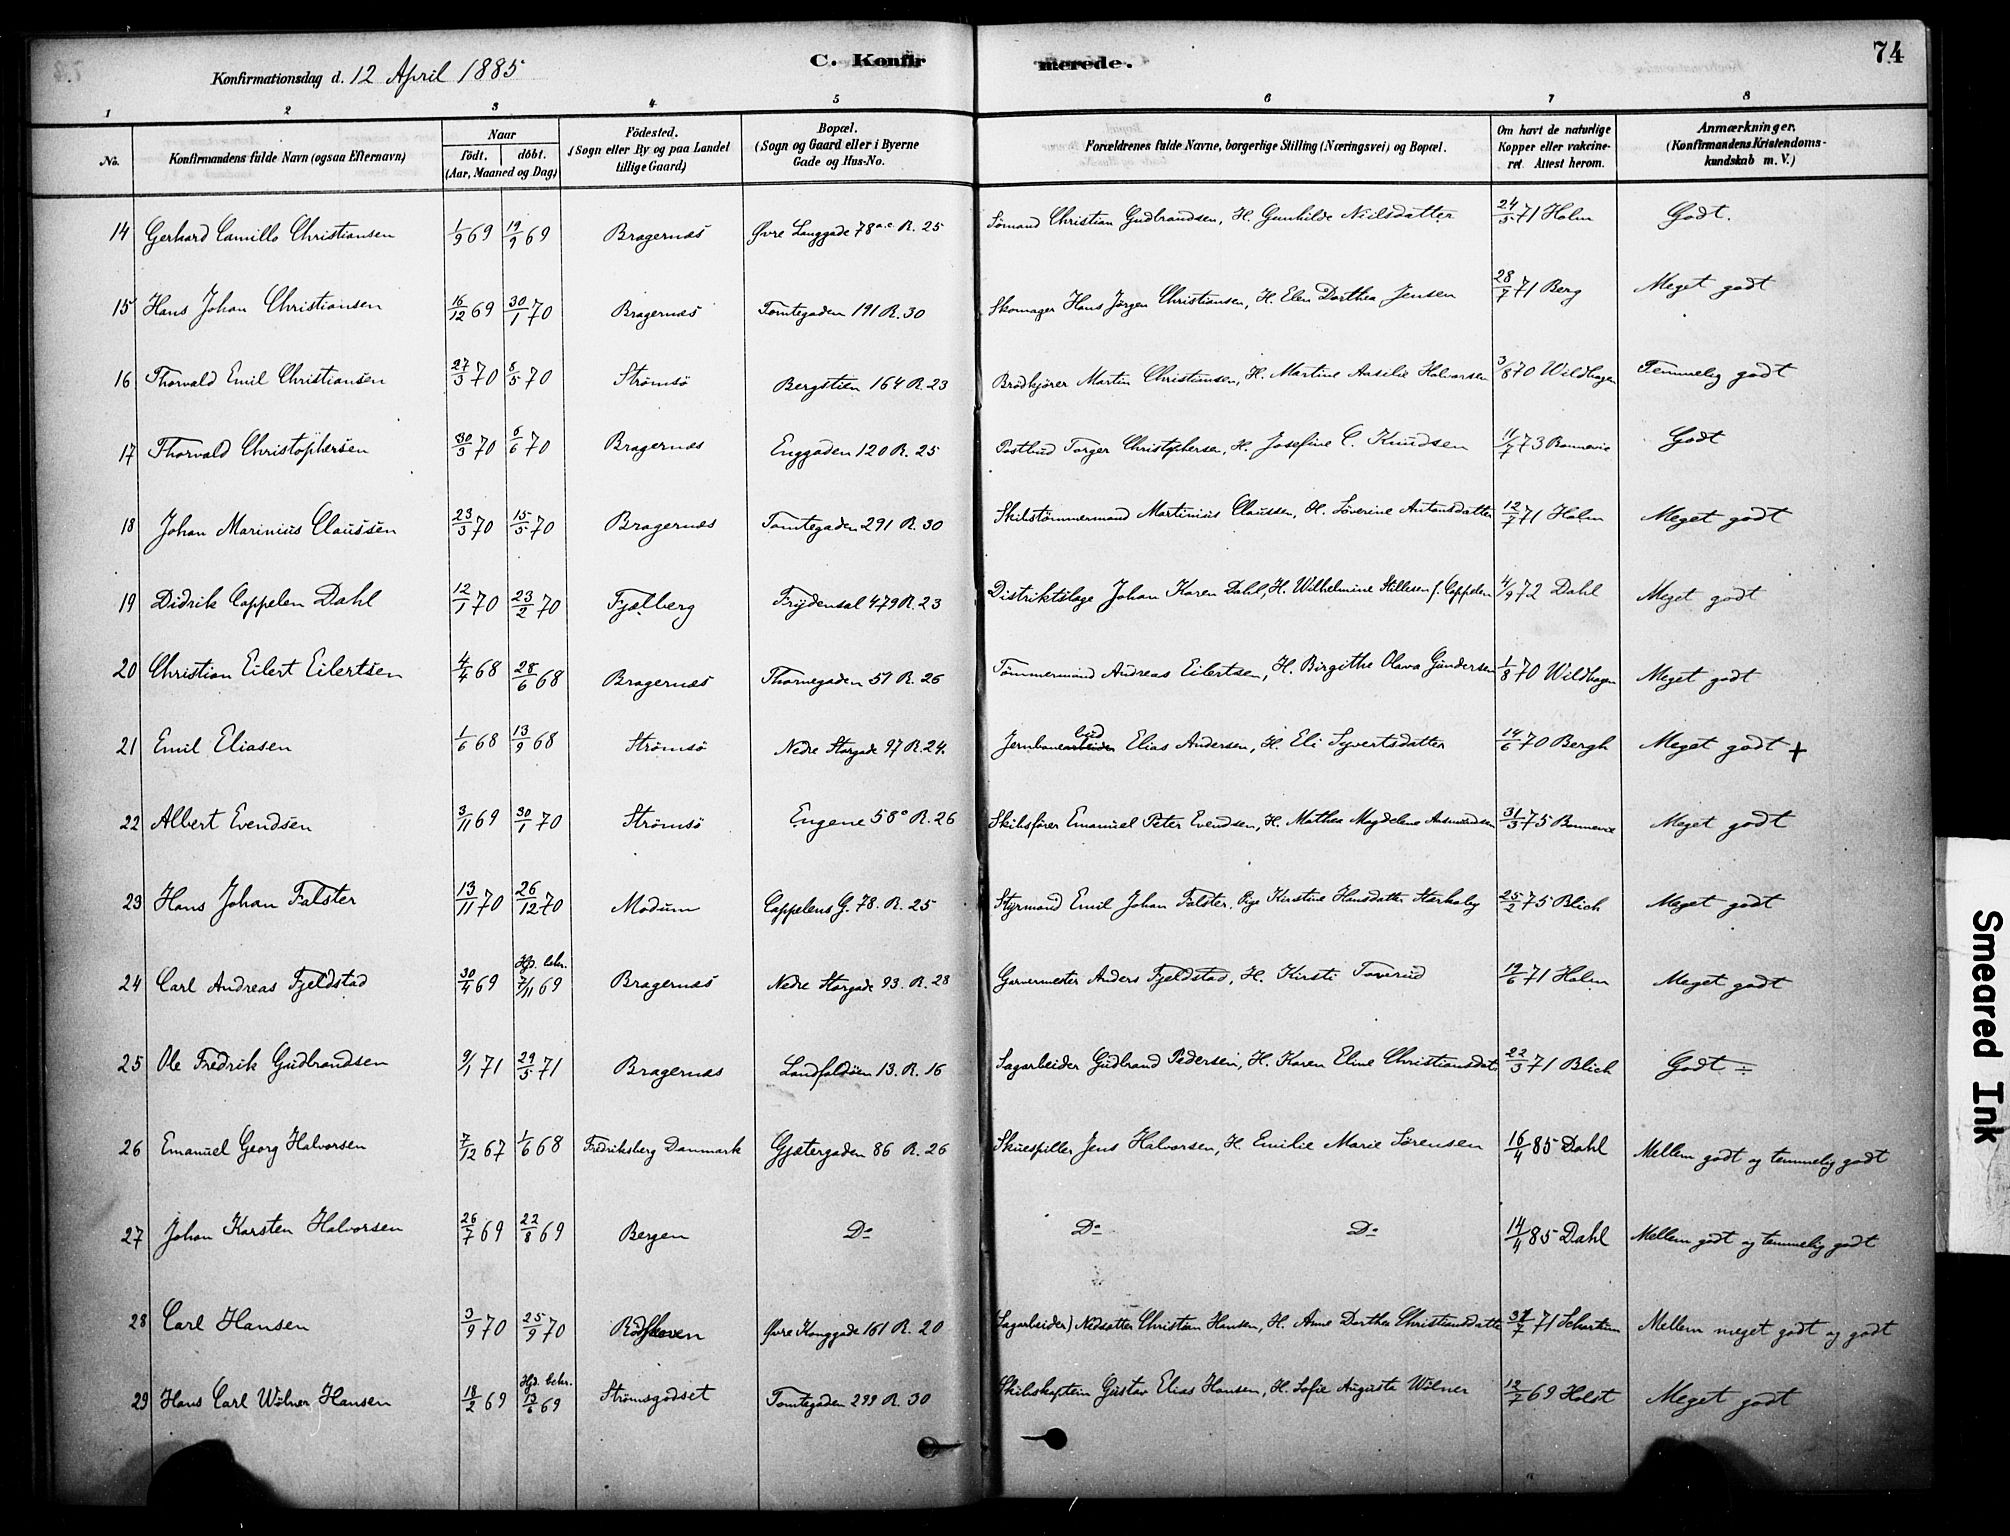 Konfirmationsdag d. 12 April 1885 C. Konfirmerede. 74
1 2 3 4 5 6 7 8
No. Konfirmandens fulde Navn (ogsaa Efternavn) Naar født. døbt. (Aar, Maaned og Dag) Fødested. (Sogn eller By og paa Landet tillige Gaard) Bopæl. (Sogn og Gaard eller i Byerne Gade og Hus-No. Forældrenes fulde Navne, borgerlige Stilling (Næringsvei) og Bopæl. Om havt de naturlige Kopper eller vakcineret. Attest herom. Anmærkninger. (Konfirmandens Kristendomskundskab m. V.)
14 Gerhard Camillo Christiansen 1/9 69 19/9 69 Bragernæs Øvre Langgade 78 a.c. R. 25 Sømand Christian Gudbrandsen, H. Gunhilde Nielsdatter 24/5 71 Holm Godt.
15 Hans Johan Christiansen 16/12 69 30/1 70 Bragernæs Tomtegaden 191 R. 30 Skomager Hans Jørgen Christiansen, H. Elen Dorthea Jensen 28/7 71 Berg Meget godt
16 Thorvald Emil Christiansen 27/3 70 8/5 70 Strømsø Bergstien 164 R. 23 Brødkjører Martin Christiansen, H. Martine Halvorsen 3/8 70 Wildhagen Temmelig godt
17 Thorvald Christophersen 30/3 70 6/6 70 Bragernæs Enggaden 120 R. 25 Postbud Torger Christophersen, H. Josefine C. Knudsen 11/7 73 Bonnevie Godt
18 Johan Marinius Claussen 23/3 70 15/5 70 Bragernæs Tomtegaden 291 R. 30 Skibstømmermand Martinius Claussen, H. Severine Antonsdatter 12/7 71 Holm Meget godt
19 Didrik Cappelen Dahl 12/1 70 23/2 70 Fjelberg Frydensal 479 R. 23 Distriktslæge Johan Koren Dahl, H. Wilhelmine Stillesen f. Cappelen 4/9 72 Dahl Meget godt
20 Christian Eilert Eilertsen 4/4 68 28/6 68 Bragernæs Thornegaden 57 R. 26 Tømmermand Andreas Eilertsen, H. Birgithe Olava Gundersen 1/8 70 Wildhagen Meget godt
21 Emil Eliasen 1/6 68 13/9 68 Strømsø Nedre Storgade 97 R. 24. Jernbanearbeider bud Elias Andersen, H. Eli Syvertsdatter 14/6 70 Bergh Meget godt +
22 Albert Evendsen 3/11 69 30/1 70 Strømsø Engene 58 a R. 26 Skibsfører Emanuel Peter Evendsen, H. Mathea Magdelene Asmundsen 31/3 75 Bonnevie Meget godt
23 Hans Johan Falster 13/11 70 26/12 70 Modum Cappelens G. 78. R. 25 Styrmand Emil Johan Falster. Pige Kirstine Hansdatter 25/2 75 Blich Meget godt
24 Carl Andreas Fjeldstad 30/4 69 Hjd. bekr. 7/11 69 Bragernæs Nedre Storgade 93. R. 28 Garvermester Anders Fjeldstad, H. Kirsti Toverud 19/6 71 Holm Meget godt
25 Ole Fredrik Gudbrandsen 9/1 71 29/5 71 Bragernæs Landfaldøen 13. R. 16 Sagarbeider Gudbrand Pedersen, H. Karen Eline Christiansdat. 22/3 71 Blich Godt ÷
26 Emanuel Georg Halvorsen 7/12 67 1/6 68 Fredriksberg Danmark Gjætergaden 86 R. 26 Skuespiller Jens Halvorsen, H. Emilie Marie Sørensen 16/4 85 Dahl Mellem godt og temmelig godt
27 Johan Karsten Halvorsen 26/7 69 22/8 69 Bergen Do Do Do 14/4 85 Dahl Mellem godt og temmelig godt
28 Carl Hansen 3/9 70 25/9 70 Rødskeven Øvre Storggade 161 R. 20 (Sagarbeider) Nedsatter Christian Hansen, H. Anne Dorthea Christiansdatter 31/7 71 Schartum Mellem meget godt og godt
29 Hans Carl Wølner Hansen 18/2 69 Hjd. bekr. 13/6 69 Strømsgodset Tomtegaden 299 R. 30 Skibskaptein Gustav Elias Hansen, H. Sofie Augusta Wølner 12/7 69 Holst Meget godt
Smeared Ink